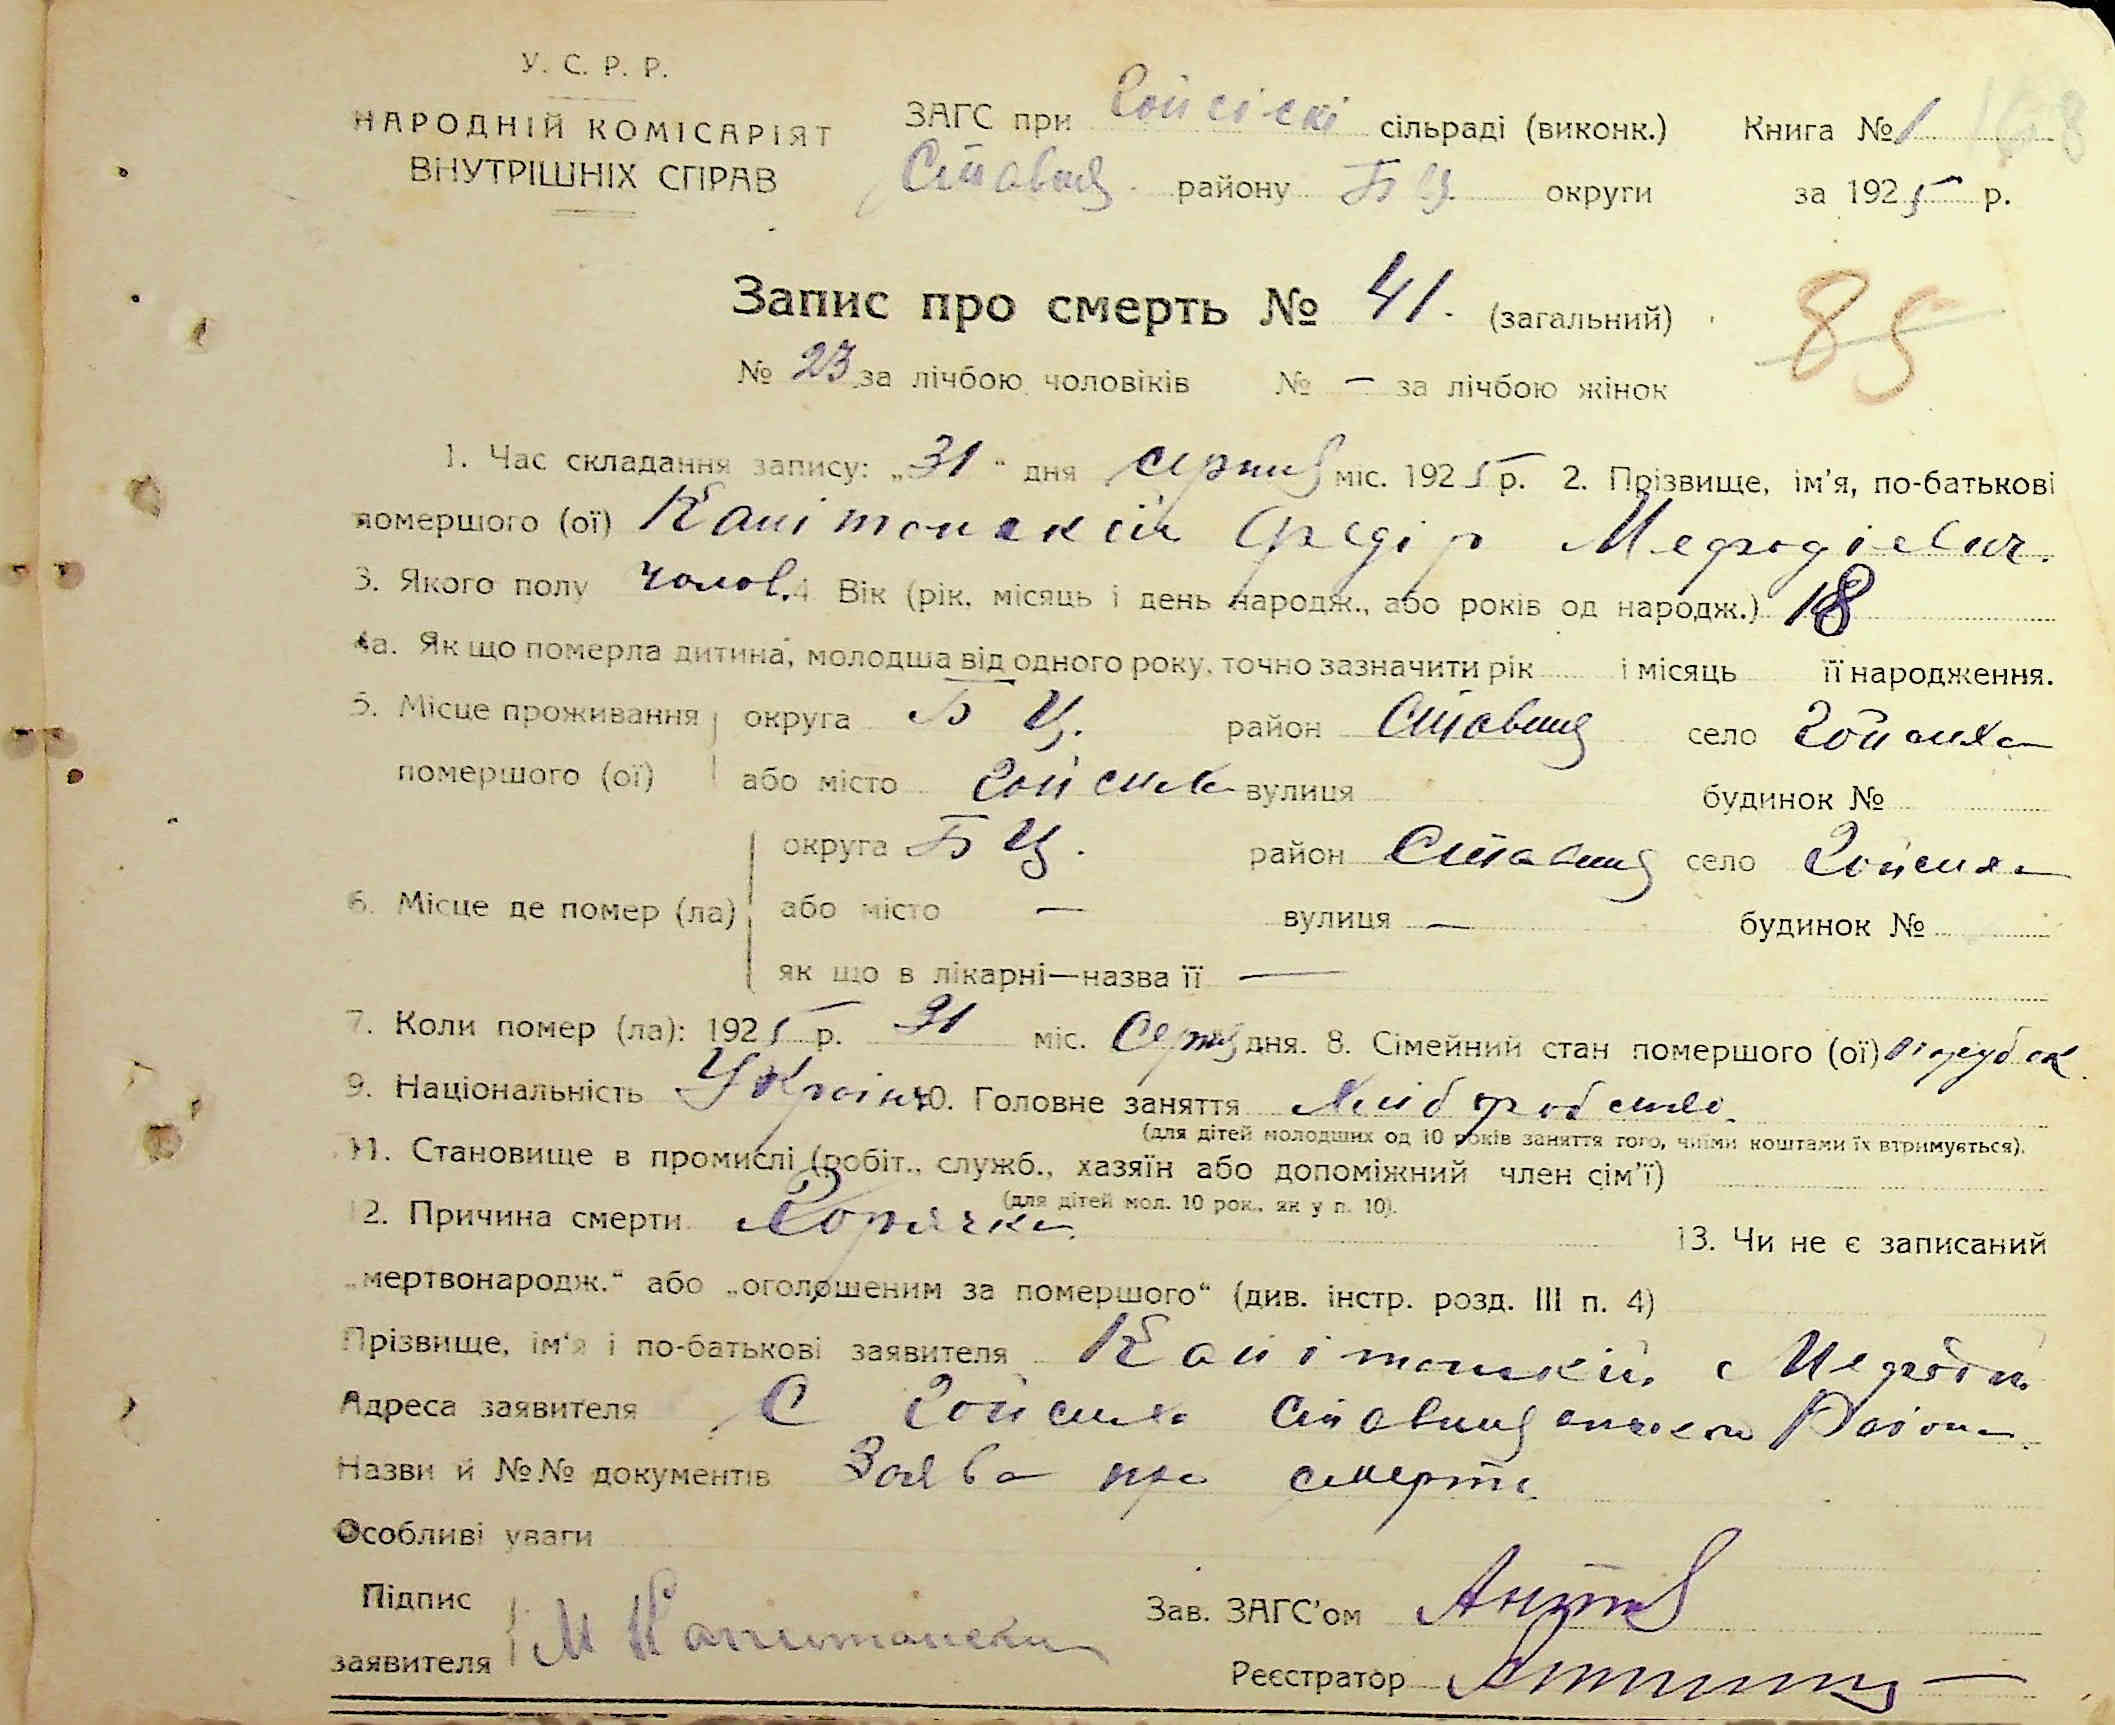 У. С. Р. Р.
НАРОДНІЙ КОМІСАРІЯТ
ВНУТРІШНІХ СПРАВ
ЗАГС при сільраді (виконк.) Книга № 1 168
Ставищ. району Б Ц. округи за 1925 р.
Запис про смерть № 41. (загальний) 85
№ 23 за лічбою чоловіків № — за лічбою жінок
1. Час складання запису: „31“ дня серпня міс. 1925 р. 2. Прізвище, ім'я, по-батькові
помершого (ої) Капітонський Федір Мефодієвич.
3. Якого полу чолов. 4 Вік (рік, місяць і день народж., або років од народж.) 18
4а. Як що померла дитина, молодша від одного року, точно зазначити рік і місяць її народження.
5. Місце проживання округа Б Ц. район Ставищ село Гойсиха
помершого (ої) або місто Гойсиха вулиця будинок №
округа Б Ц. район Ставищ село Гойсиха
6. Місце де помер (ла) або місто — вулиця — будинок №
як що в лікарні—назва її —
7. Коли помер (ла): 1925 р. 31 міс. Серпня дня. 8. Сімейний стан помершого (ої) парубок.
9. Національність Україн. 10. Головне заняття Хліборобство.
(для дітей молодших од 10 років заняття того, чиїми коштами їх втримується).
11. Становище в промислі (робіт., служб., хазяїн або допоміжний член сім'ї)
(для дітей мол. 10 рок., як у п. 10).
12. Причина смерти Горячка. 13. Чи не є записаний
„мертвонародж.“ або „оголошеним за помершого“ (див. інстр. розд. III п. 4)
Прізвище, ім'я і по-батькові заявителя Капітонський Мефодій
Адреса заявителя С Гойсиха Ставищанського Району
Назви й №№ документів Заява про смерть.
Особливі уваги
Підпис
заявителя М Капитонский
Зав. ЗАГС'ом
Реєстратор